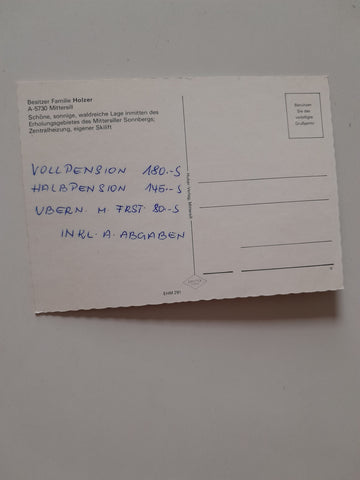 Besitzer Familie Holzer
A-5730 Mittersill
Schöne, sonnige, waldreiche Lage inmitten des
Erholungsgebietes des Mittersiller Sonnbergs;
Zentralheizung, eigener Skilift
VOLLPENSION 180.-S
HALBPENSION 145.-S
ÜBERN. M. FRST. 80.-S
INKL. A. ABGABEN
EHM 291
Benützen
Sie das